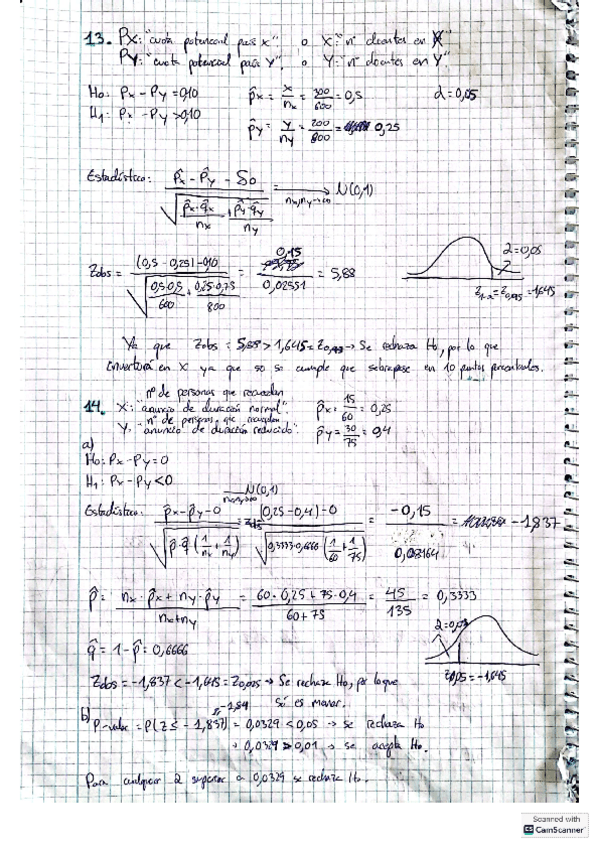 13. Px: "cuota potencial país X" o X: "nº clientes en X"
Py: "cuota potencial país Y" o Y: "nº clientes en Y"
H0: Px - Py = 0,10   p̂x = x/nx = 300/600 = 0,5   α = 0,05
H1: Px - Py > 0,10   p̂y = y/ny = 200/800 = 0,25
Estadístico: (p̂x - p̂y - δ0) / √(p̂x·q̂x/nx + p̂y·q̂y/ny) → nx,ny→∞ N(0,1)
Zobs = ((0,5 - 0,25) - 0,10) / √(0,5·0,5/600 + 0,25·0,75/800) = 0,15/0,02551 = 5,88
α = 0,05
Z1-α = Z0,95 = 1,645
Ya que Zobs = 5,88 > 1,645 = Z0,95 → Se rechaza H0, por lo que
invertirá en X ya que se cumple que sobrepase en 10 puntos porcentuales.
14. X: "nº de personas que recuerdan anuncio de duración normal"   p̂x = 15/60 = 0,25
Y: "nº de personas que recuerdan anuncio de duración reducido"   p̂y = 30/75 = 0,4
a)
H0: Px - Py = 0
H1: Px - Py < 0
Estadístico: (p̂x - p̂y - 0) / √(p̂·q̂(1/nx + 1/ny)) → N(0,1) = ((0,25 - 0,4) - 0) / √(0,3333·0,6666(1/60 + 1/75)) = -0,15/0,08164 = -1,837
p̂ = (nx·p̂x + ny·p̂y)/(nx+ny) = (60·0,25 + 75·0,4)/(60+75) = 45/135 = 0,3333
q̂ = 1 - p̂ = 0,6666
Z0,05 = -1,645
Zobs = -1,837 < -1,645 = Z0,05 → Se rechaza H0, por lo que
sí es menor.
-1,84
b) P-valor = P(Z ≤ -1,837) = 0,0329 < 0,05 → se rechaza H0
0,0329 > 0,01 → se acepta H0.
Para cualquier α superior a 0,0329 se rechaza H0.
Scanned with
CamScanner